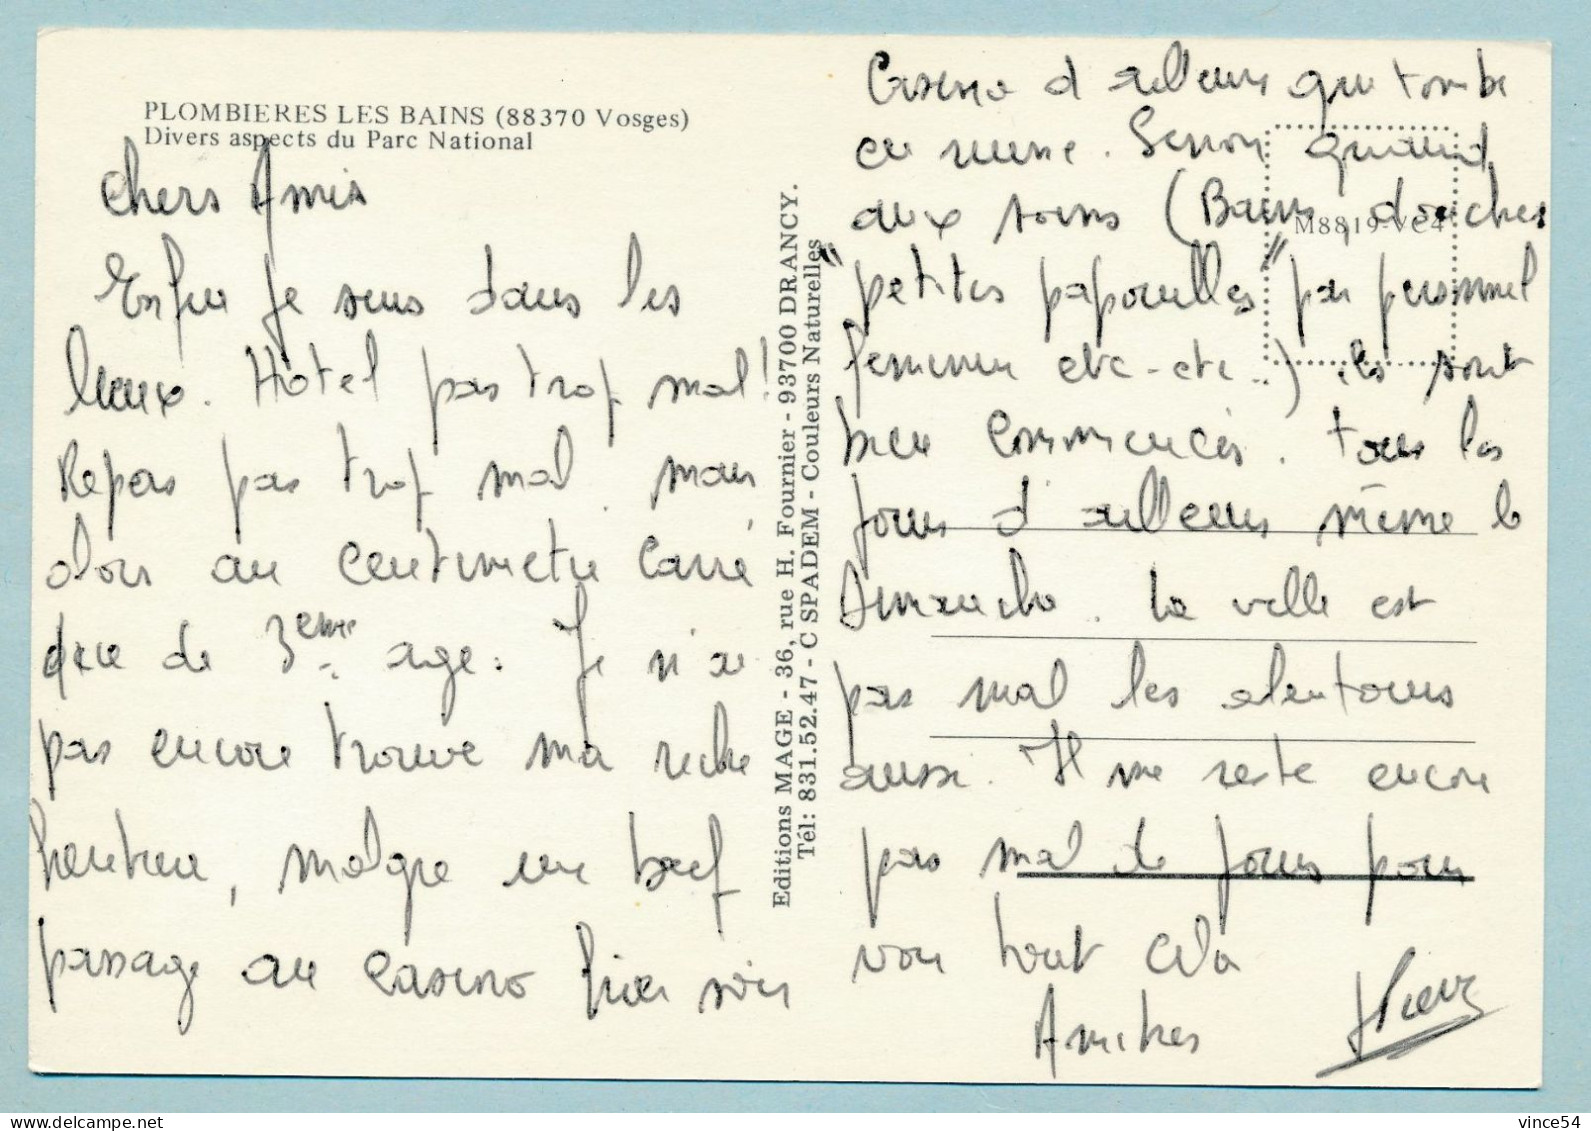 PLOMBIERES LES BAINS (88370 Vosges)
Divers aspects du Parc National
Chers Amis
Enfin je suis dans les
lieux. Hôtel pas trop mal!
Repas pas trop mal. mais
alors au centimetre carré
que de 3eme age. Je n'ai
pas encore trouvé ma riche
heritiere, malgre un bref
passage au casino hier soir
Editions MAGE - 36, rue H. Fournier - 93700 DRANCY.
Tél: 831.52.47 - C SPADEM - Couleurs Naturelles
Casino d'ailleurs qui tombe
en ruine. Sinon quand
aux soins (Bains, douches
M8819-VC4
"petites papouilles" par personnel
feminin etc-etc..) ils sont
bien commencés. tous les
jours d'ailleurs même le
Dimanche. La ville est
pas mal les alentours
aussi. Il me reste encore
pas mal de jours pour
voir tout cela
Amities
vince54
vince54